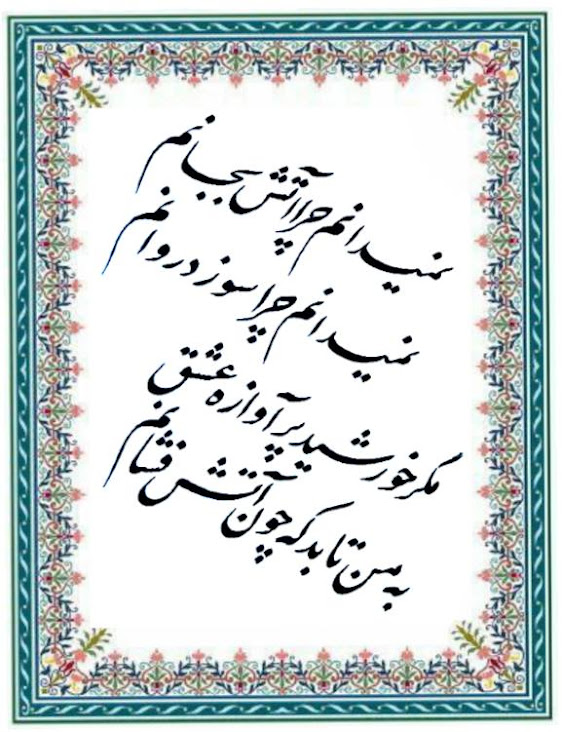 نمیدانم چرا آتش بجانم
نمیدانم چرا سوزد روانم
مگر خورشید پرآوازه عشق
به من تابد که چون آتش فشانم